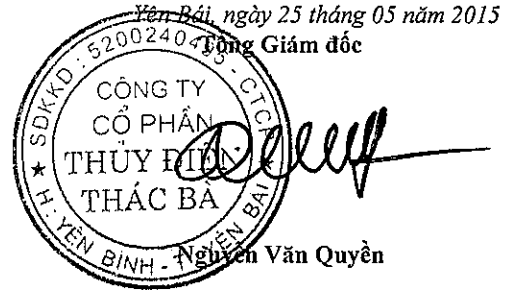 Yên Bái, ngày 25 tháng 05 năm 2015
Tổng Giám đốc
SDKKD: 5200240495 - CTCP
CÔNG TY
CỔ PHẦN
THỦY ĐIỆN
THÁC BÀ
H. YÊN BÌNH - T. YÊN BÁI
Nguyễn Văn Quyền